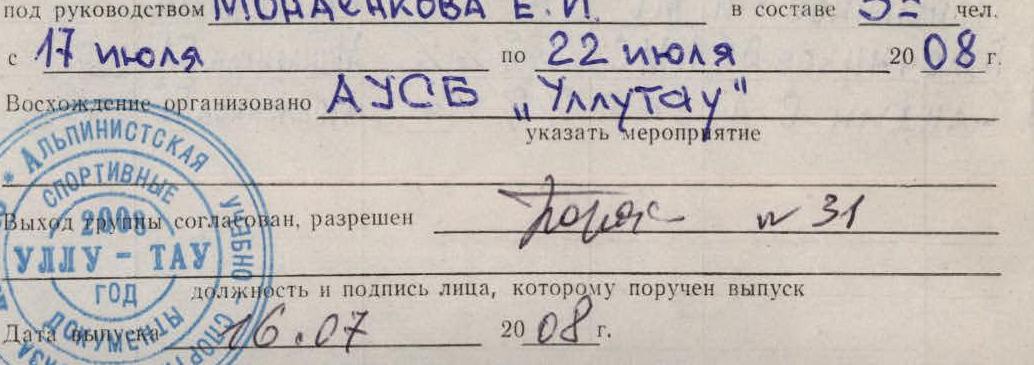 под руководством Е.И. в составе чел.
с 17 июля по 22 июля 2008 г.
Восхождение организовано АУСБ „Уллутау"
указать мероприятие
Выход группы согласован, разрешен № 31
должность и подпись лица, которому поручен выпуск
Дата выпуска 16.07 2008 г.
АЛЬПИНИСТСКАЯ УЧЕБНО СПОРТ
СПОРТИВНЫЕ
УЛЛУ - ТАУ
ГОД
ДОКУМЕНТЫ